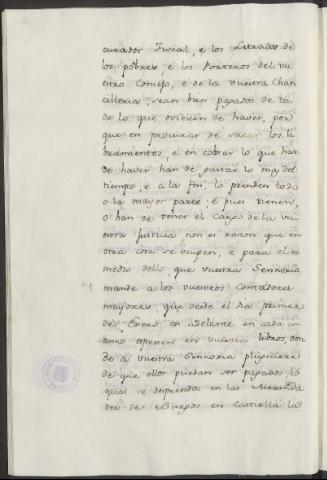 curador Fiscal, e los Letrados de
los pobres, e los Porteros del vu
estro Consejo, e de la vuestra Chan
cilleria, sean bien pagados de to
do lo que ovieren de haver, por
que en procurar de sacar los li
bramientos, e en cobrar lo que han
de haver han de gastar lo mas del
tiempo, e a la fin, lo pierden todo
o la mayor parte: e pues tienen,
o han de tener el cargo de la vu
estra Justicia non es razon que en
otra cosa se ocupen, e para el re
medio dello, que vuestra Sennoria
mande a los vuestros Contadores
mayores, que desde el dia primero
de Enero en adelante en cada un
anno asienten en vuestros libros, don
de a vuestra Sennoria pluguiere
de que ellos puedan ser pagados lo
qual se desprenda en las Merinda
des de Burgos en Castiella la